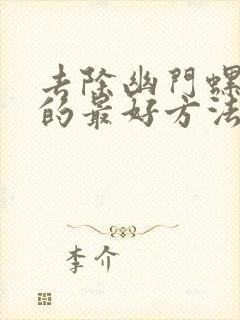 去除幽門螺
的最好方法
李介